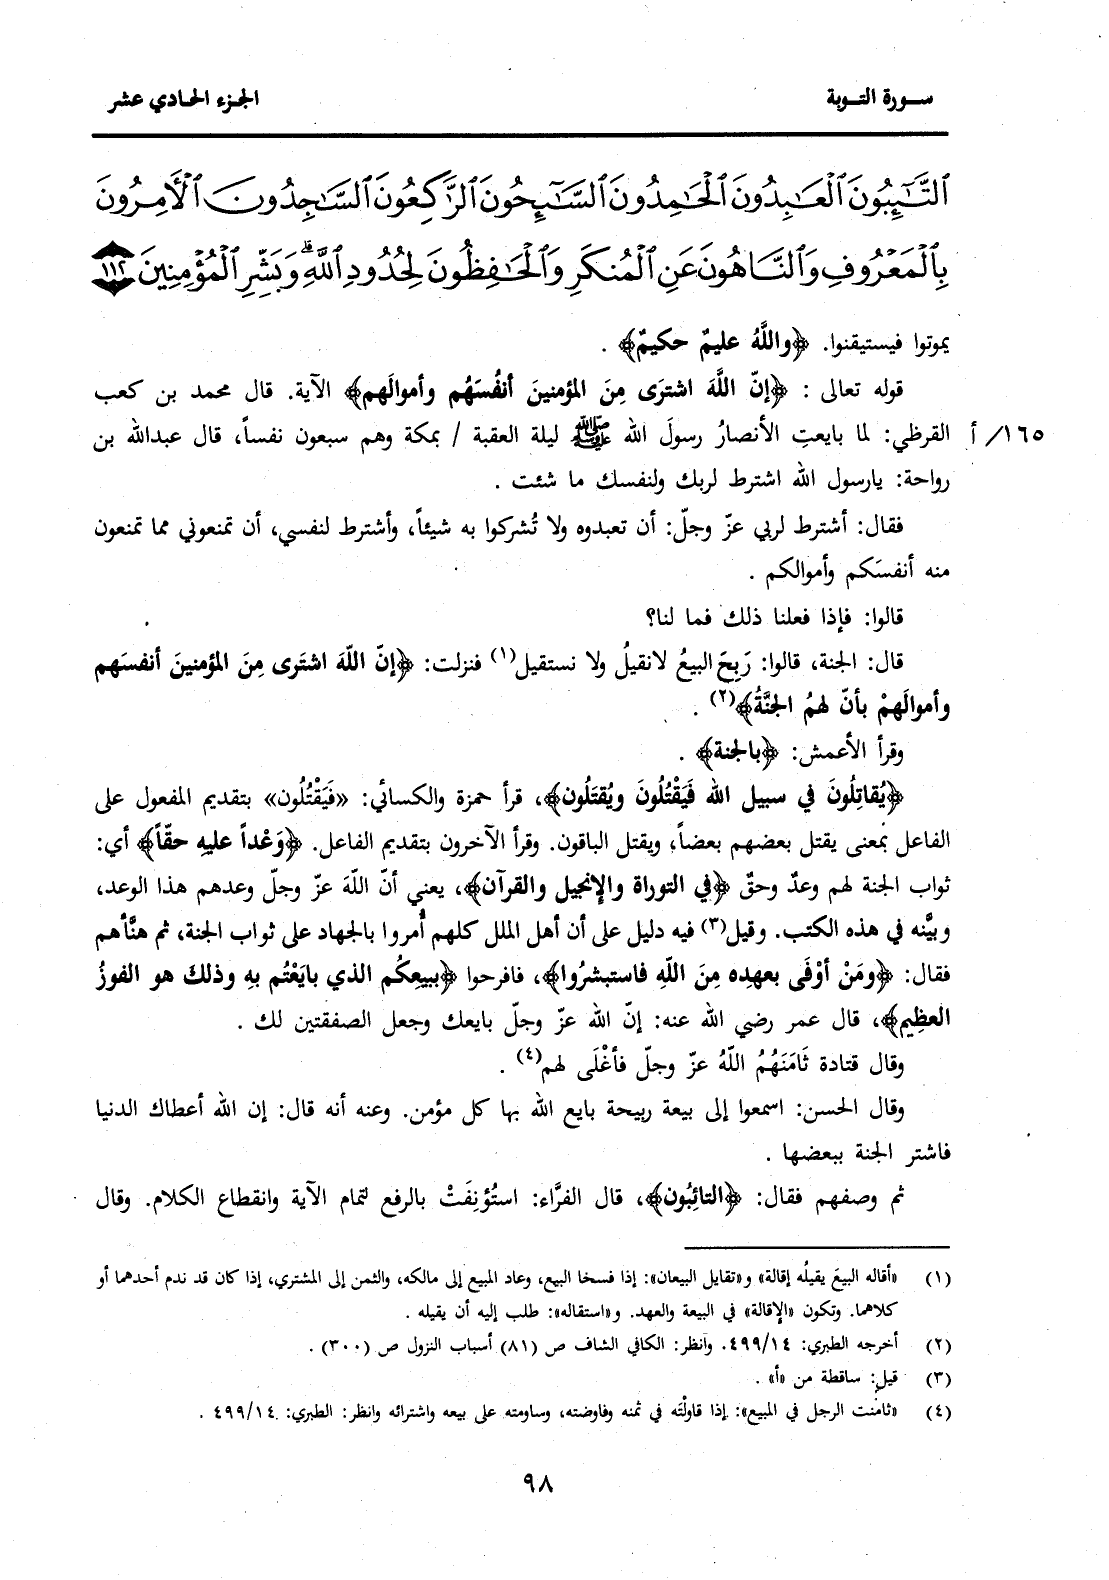 سورة التوبة
الجزء الحادي عشر
ٱلتَّٰٓئِبُونَ ٱلْعَٰبِدُونَ ٱلْحَٰمِدُونَ ٱلسَّٰٓئِحُونَ ٱلرَّٰكِعُونَ ٱلسَّٰجِدُونَ ٱلْءَامِرُونَ
بِٱلْمَعْرُوفِ وَٱلنَّاهُونَ عَنِ ٱلْمُنكَرِ وَٱلْحَٰفِظُونَ لِحُدُودِ ٱللَّهِۗ وَبَشِّرِ ٱلْمُؤْمِنِينَ ١١٢
يموتوا فيستيقنوا. ﴿واللَّهُ عليمٌ حكيمٌ﴾ .
قوله تعالى : ﴿إنّ اللَّهَ اشترَى مِنَ المؤمنينَ أنفُسَهُم وأموالَهم﴾ الآية. قال محمد بن كعب
١٦٥/ أ القرظي: لما بايعتِ الأنصارُ رسولَ الله ﷺ ليلة العقبة / بمكة وهم سبعون نفساً، قال عبدالله بن
رواحة: يارسول الله اشترط لربك ولنفسك ما شئت .
فقال: أشترط لربي عزّ وجلّ: أن تعبدوه ولا تُشركوا به شيئاً، وأشترط لنفسي، أن تمنعوني مما تمنعون
منه أنفسَكم وأموالكم .
قالوا: فإذا فعلنا ذلك فما لنا؟
قال: الجنة، قالوا: رَبِحَ البيعُ لانقيلُ ولا نستقيل(١) فنزلت: ﴿إنّ اللّهَ اشترى مِنَ المؤمنينَ أنفسَهم
وأموالَهمْ بأنّ لهمُ الجنَّةُ﴾(٢) .
وقرأ الأعمش: ﴿بالجنة﴾ .
﴿يُقاتِلُونَ في سبيل الله فَيَقْتُلُونَ ويُقتَلُون﴾، قرأ حمزة والكسائي: «فَيَقْتُلُون» بتقديم المفعول على
الفاعل بمعنى يقتل بعضهم بعضاً، ويقتل الباقون. وقرأ الآخرون بتقديم الفاعل. ﴿وَعْداً عليهِ حقّاً﴾ أي:
ثواب الجنة لهم وعدٌ وحقٌ ﴿في التوراة والإنجيل والقرآن﴾، يعني أنّ اللّهَ عزّ وجلّ وعدهم هذا الوعد،
وبيَّنه في هذه الكتب. وقيل(٣) فيه دليل على أن أهل الملل كلهم أُمروا بالجهاد على ثواب الجنة، ثم هنَّأهم
فقال: ﴿ومَنْ أوْفَى بعهدِه مِنَ اللّهِ فاستبشرُوا﴾، فافرحوا ﴿ببيعِكُم الذي بايَعْتُم بهِ وذلكَ هو الفوزُ
العظِيم﴾، قال عمر رضي الله عنه: إنّ الله عزّ وجلّ بايعك وجعل الصفقتين لك .
وقال قتادة ثَامَنَهُمُ اللّهُ عزّ وجلّ فأغْلَى لهم(٤) .
وقال الحسن: اسمعوا إلى بيعة ربيحة بايع الله بها كل مؤمن. وعنه أنه قال: إن الله أعطاك الدنيا
فاشتر الجنة ببعضها .
ثم وصفهم فقال: ﴿التائِبُون﴾، قال الفرَّاء: استُؤنِفَتْ بالرفع لتمام الآية وانقطاع الكلام. وقال
(١) «أقاله البيعَ يقيلُه إقالة» و«تقايل البيعان»: إذا فسخا البيع، وعاد المبيع إلى مالكه، والثمن إلى المشتري، إذا كان قد ندم أحدهما أو
كلاهما. وتكون «الإقالة» في البيعة والعهد. و«استقاله»: طلب إليه أن يقيله .
(٢) أخرجه الطبري: ٤٩٩/١٤. وانظر: الكافي الشاف ص (٨١) أسباب النزول ص (٣٠٠) .
(٣) قيل: ساقطة من «أ» .
(٤) «ثامُنت الرجل في المبيع»: إذا قاولْتَه في ثمنه وفاوضته، وساومته على بيعه واشترائه وانظر: الطبري: ٤٩٩/١٤ .
٩٨